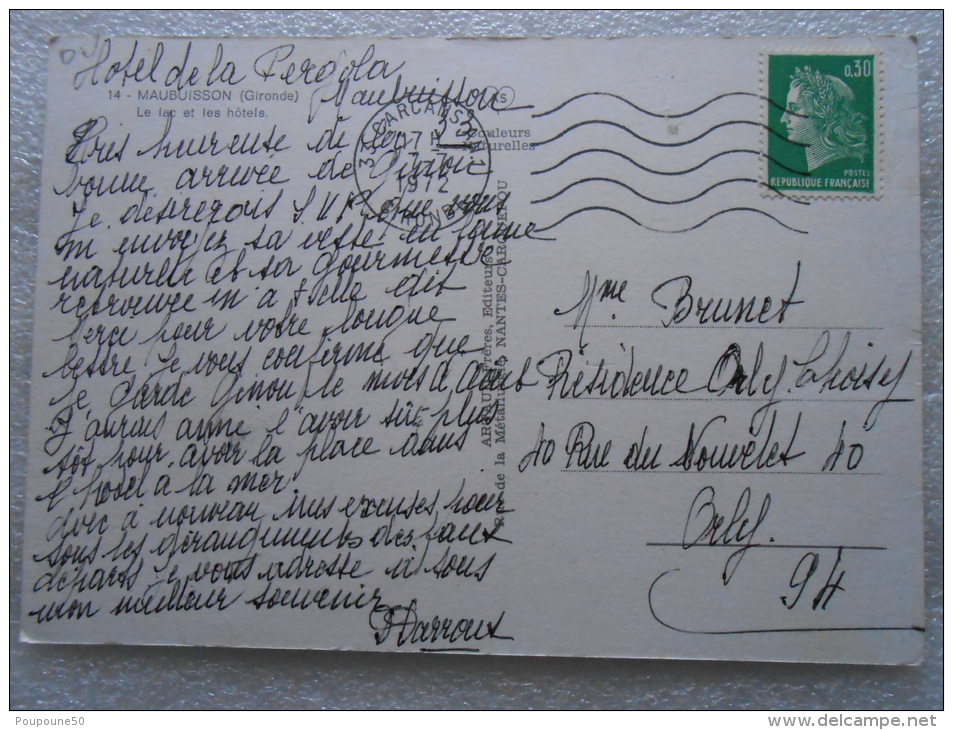 Hotel de la Pergola
Maubuisson
14 - MAUBUISSON (Gironde)
Le lac et les hôtels.
Couleurs
Naturelles
Très heureuse de la
bonne arrivée de Ginou
Je désirerais S.V.P que vous
m'envoyez sa veste en laine
naturelle et sa gourmette
retrouvée m'a t-elle dit
Merci pour votre longue
lettre je vous confirme que
je garde Ginou le mois d'Aout
J'aurais aimé l'avoir su plus
tôt pour avoir la place dans
l'hotel à la mer
avec à nouveau mes excuses pour
tous les dérangements des faux
départs je vous adresse à tous
mon meilleur souvenir
Darroux
33 CARCANS
1972
GIRONDE
0,30
POSTES
REPUBLIQUE FRANÇAISE
ARTAUD Frères, Editeurs
de la Métallurgie, NANTES-CARQUEFOU
Mme Brunet
Résidence Orly Choisy
40 Rue du Nouvelet 40
Orly.
94
Poupoune50
www.delcampe.net